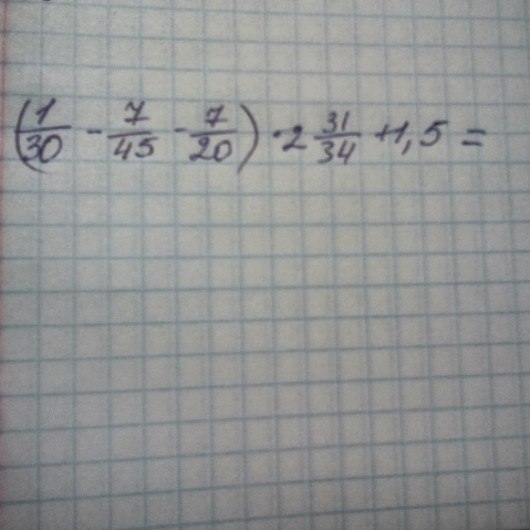 (1/30 - 7/45 - 7/20) · 2 31/34 + 1,5 =